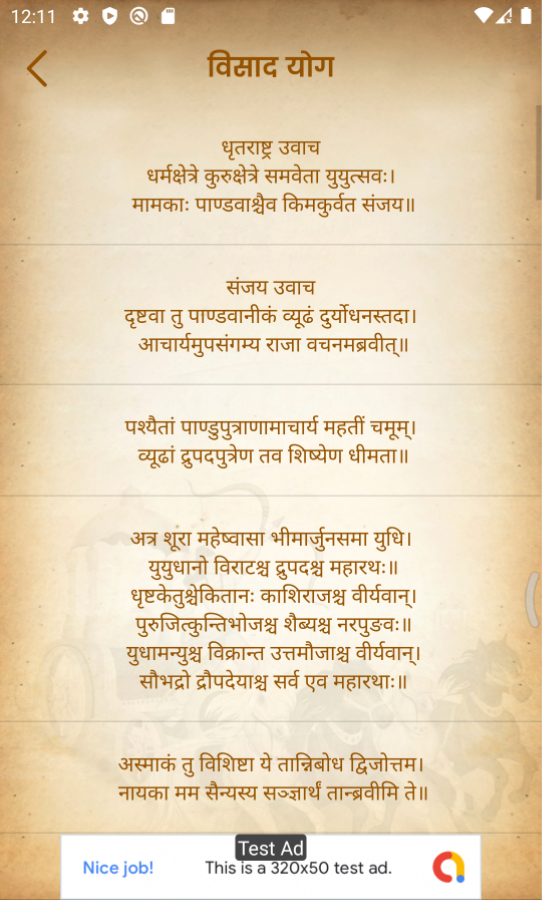 12:11
विसाद योग
धृतराष्ट्र उवाच
धर्मक्षेत्रे कुरुक्षेत्रे समवेता युयुत्सवः।
मामकाः पाण्डवाश्चैव किमकुर्वत संजय॥
संजय उवाच
दृष्टवा तु पाण्डवानीकं व्यूढं दुर्योधनस्तदा।
आचार्यमुपसंगम्य राजा वचनमब्रवीत्॥
पश्यैतां पाण्डुपुत्राणामाचार्य महतीं चमूम्।
व्यूढां द्रुपदपुत्रेण तव शिष्येण धीमता॥
अत्र शूरा महेष्वासा भीमार्जुनसमा युधि।
युयुधानो विराटश्च द्रुपदश्च महारथः॥
धृष्टकेतुश्चेकितानः काशिराजश्च वीर्यवान्।
पुरुजित्कुन्तिभोजश्च शैब्यश्च नरपुङवः॥
युधामन्युश्च विक्रान्त उत्तमौजाश्च वीर्यवान्।
सौभद्रो द्रौपदेयाश्च सर्व एव महारथाः॥
अस्माकं तु विशिष्टा ये तान्निबोध द्विजोत्तम।
नायका मम सैन्यस्य सञ्ज्ञार्थं तान्ब्रवीमि ते॥
Test Ad
Nice job! This is a 320x50 test ad.